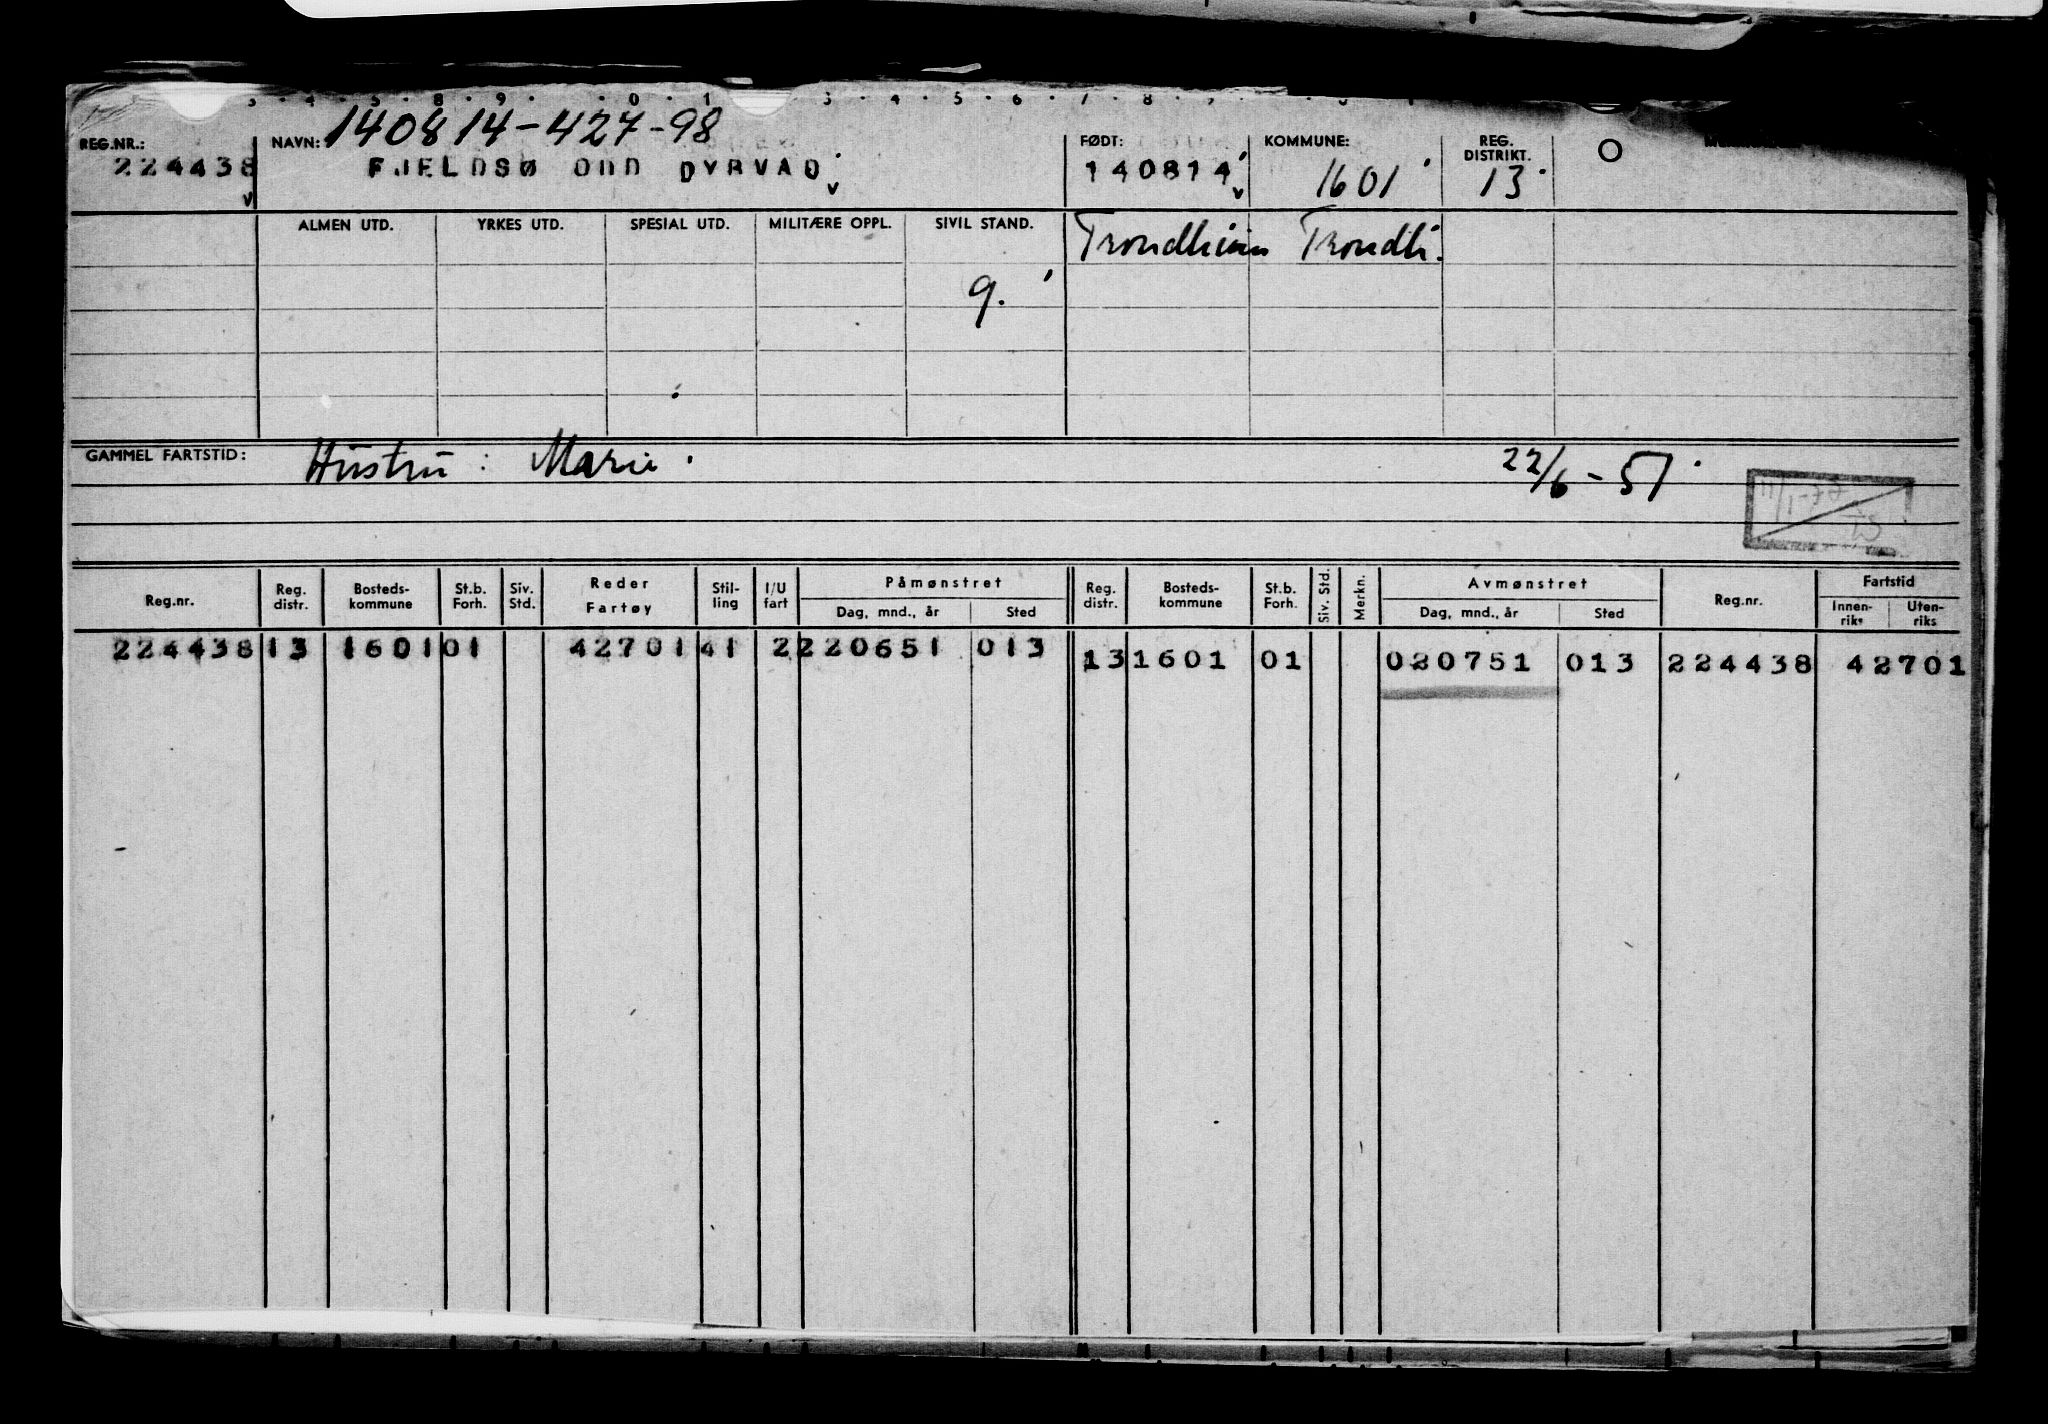 140814-427-98
REG.NR.: NAVN: FØDT: KOMMUNE: REG. DISTRIKT.
224438 FJELDSØ ODD DYRVAD 140814 1601 13
ALMEN UTD. YRKES UTD. SPESIAL UTD. MILITÆRE OPPL. SIVIL STAND. Trondheim Trondh.
9.
GAMMEL FARTSTID: Hustru: Marie. 22/6-51
11/1-72
Reg.nr. Reg. distr. Bosteds-kommune St.b. Forh. Siv. Std. Reder Fartøy Stil-ling I/U fart Påmønstret Dag, mnd., år Sted Reg. distr. Bosteds-kommune St.b. Forh. Siv. Std. Merkn. Avmønstret Dag, mnd., år Sted Reg.nr. Fartstid Innen-riks Uten-riks
224438 13 1601 01 42701 41 2 220651 013 13 1601 01 020751 013 224438 42701